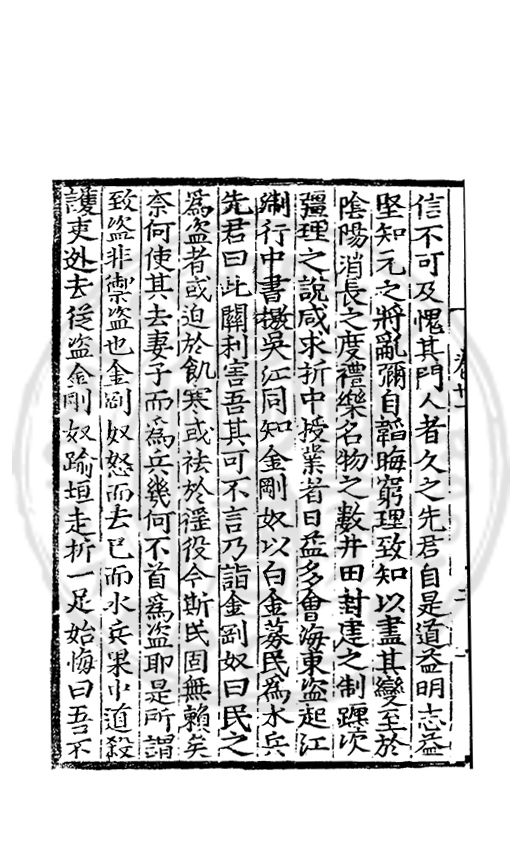 信不可及愧其門人者久之先君自是道益明志益
堅知元之將亂彌自韜晦窮理致知以盡其變至於
陰陽消長之度禮樂名物之數井田封建之制躔次
疆理之說咸求折中授業者日益多會海東盜起江
淛行中書檄吳江同知金剛奴以白金募民為水兵
先君曰此關利害吾其可不言乃詣金剛奴曰民之
為盜者或迫於飢寒或祛於徭役今斯民固無賴矣
奈何使其去妻子而為兵幾何不首為盜耶是所謂
致盜非禦盜也金剛奴怒而去已而水兵果中道殺
護吏迯去從盜金剛奴踰垣走折一足始悔曰吾不